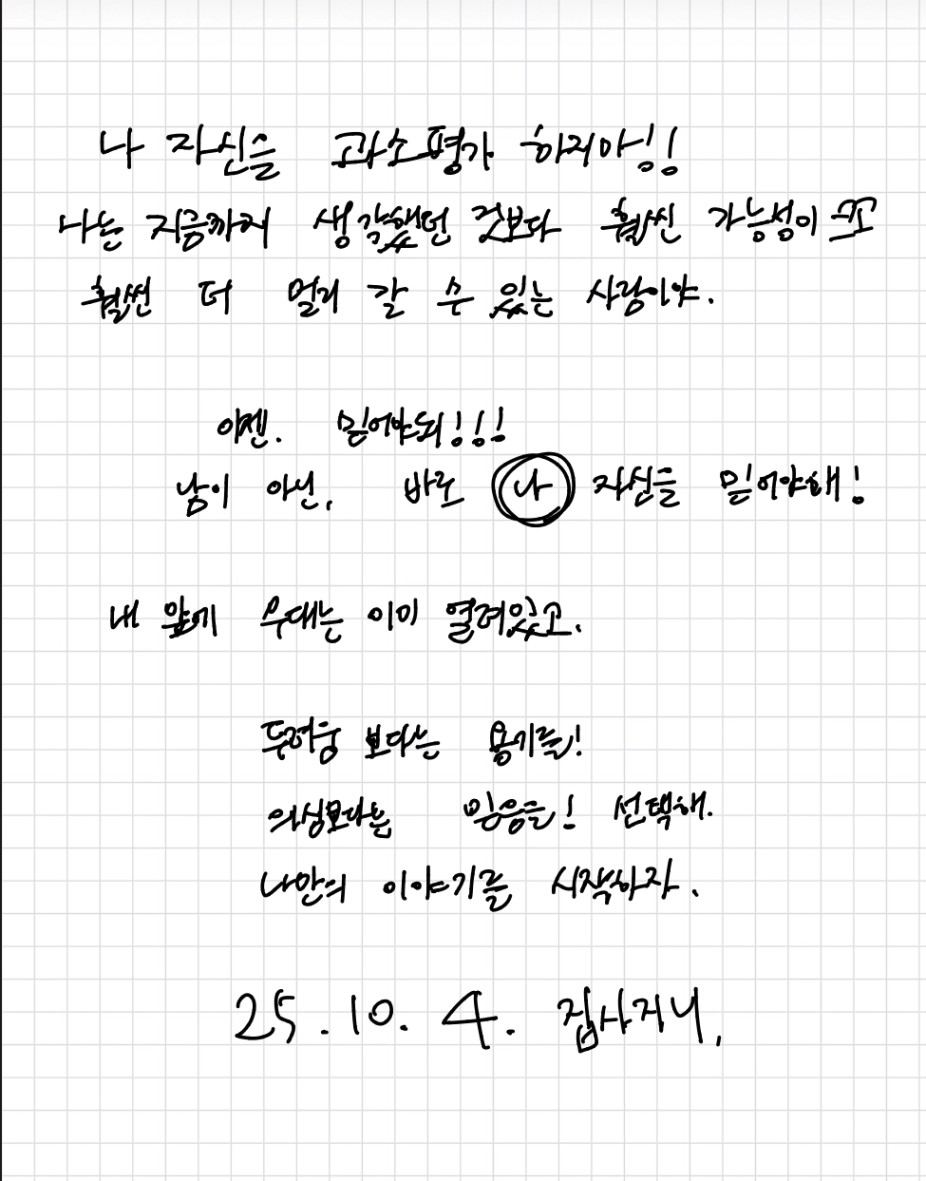 나 자신을 과소평가 하지마!!
나는 지금까지 생각했던 것보다 훨씬 가능성이 크고
훨씬 더 멀리 갈 수 있는 사람이야.
이젠. 믿어야돼!!!
남이 아닌, 바로 나 자신을 믿어야해!
내 앞에 무대는 이미 열려있고.
두려움 보다는 용기를!
의심보다는 믿음을! 선택해.
나만의 이야기를 시작하자.
25.10.4. 집사지니.